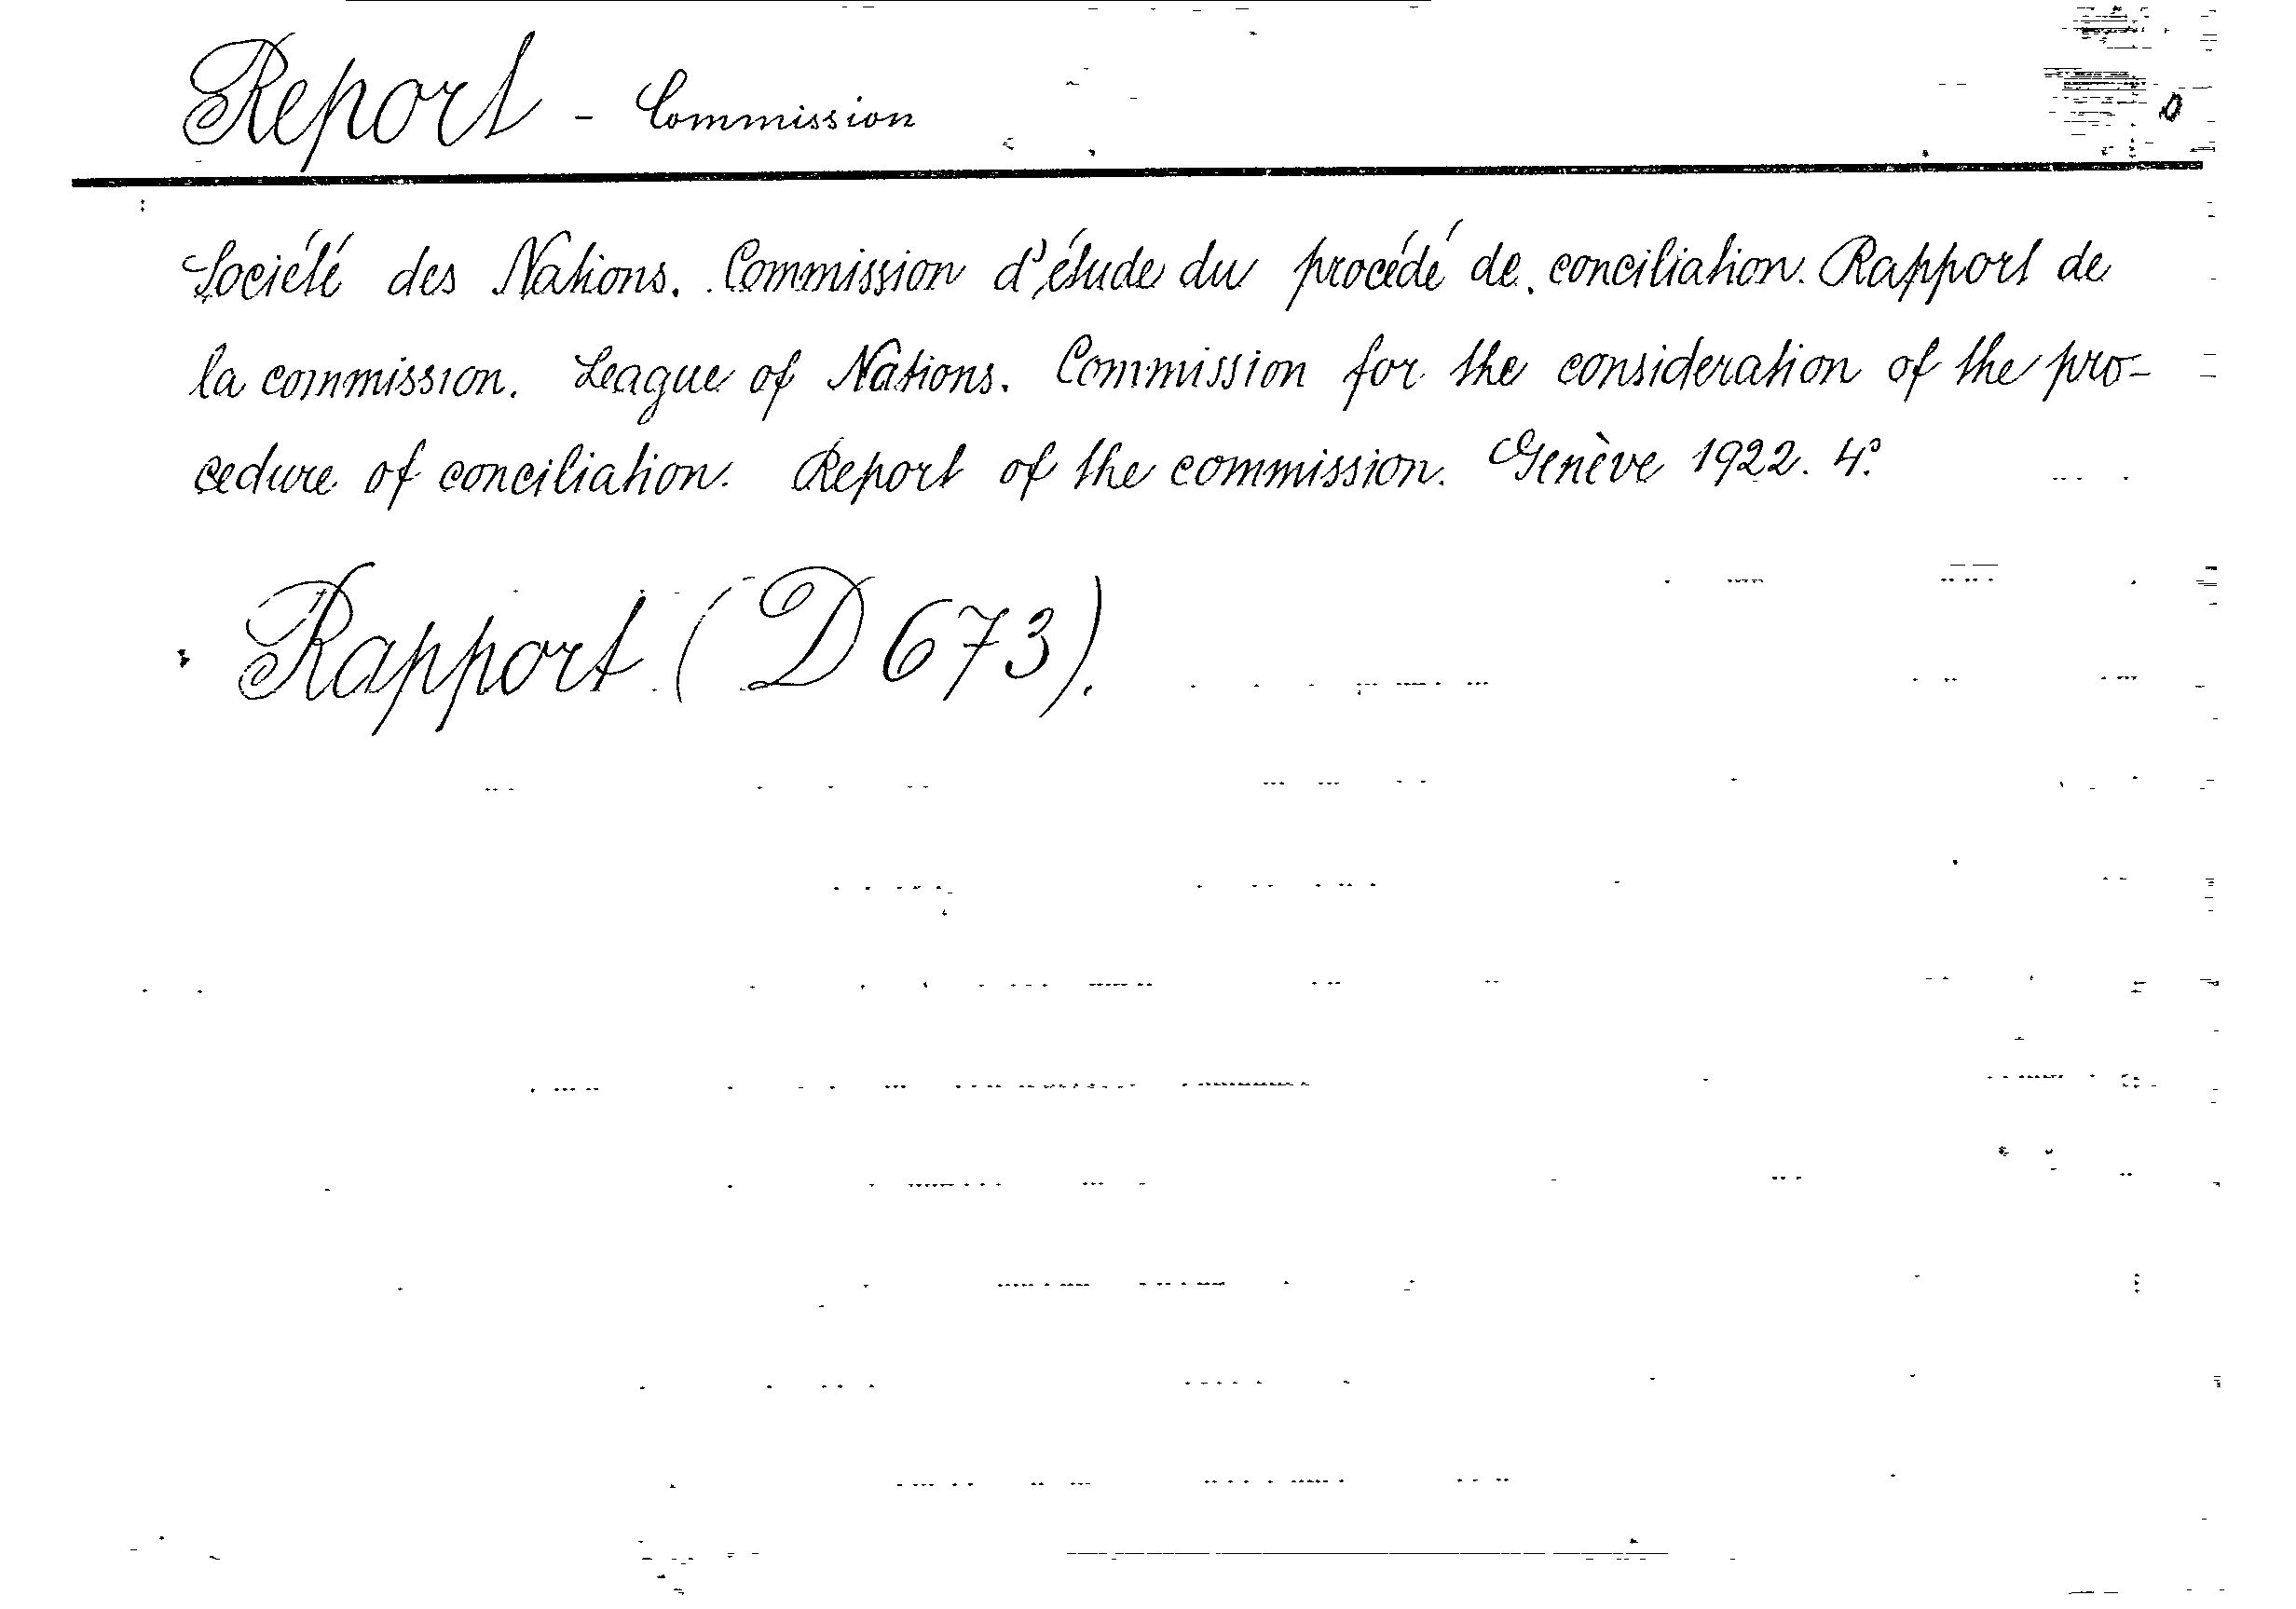 Report - Commission
Société des Nations. Commission d'étude du procédé de conciliation. Rapport de
la commission. League of Nations. Commission for the consideration of the pro-
cedure of conciliation. Report of the commission. Genève 1922. 4°.
Rapport (D 673).